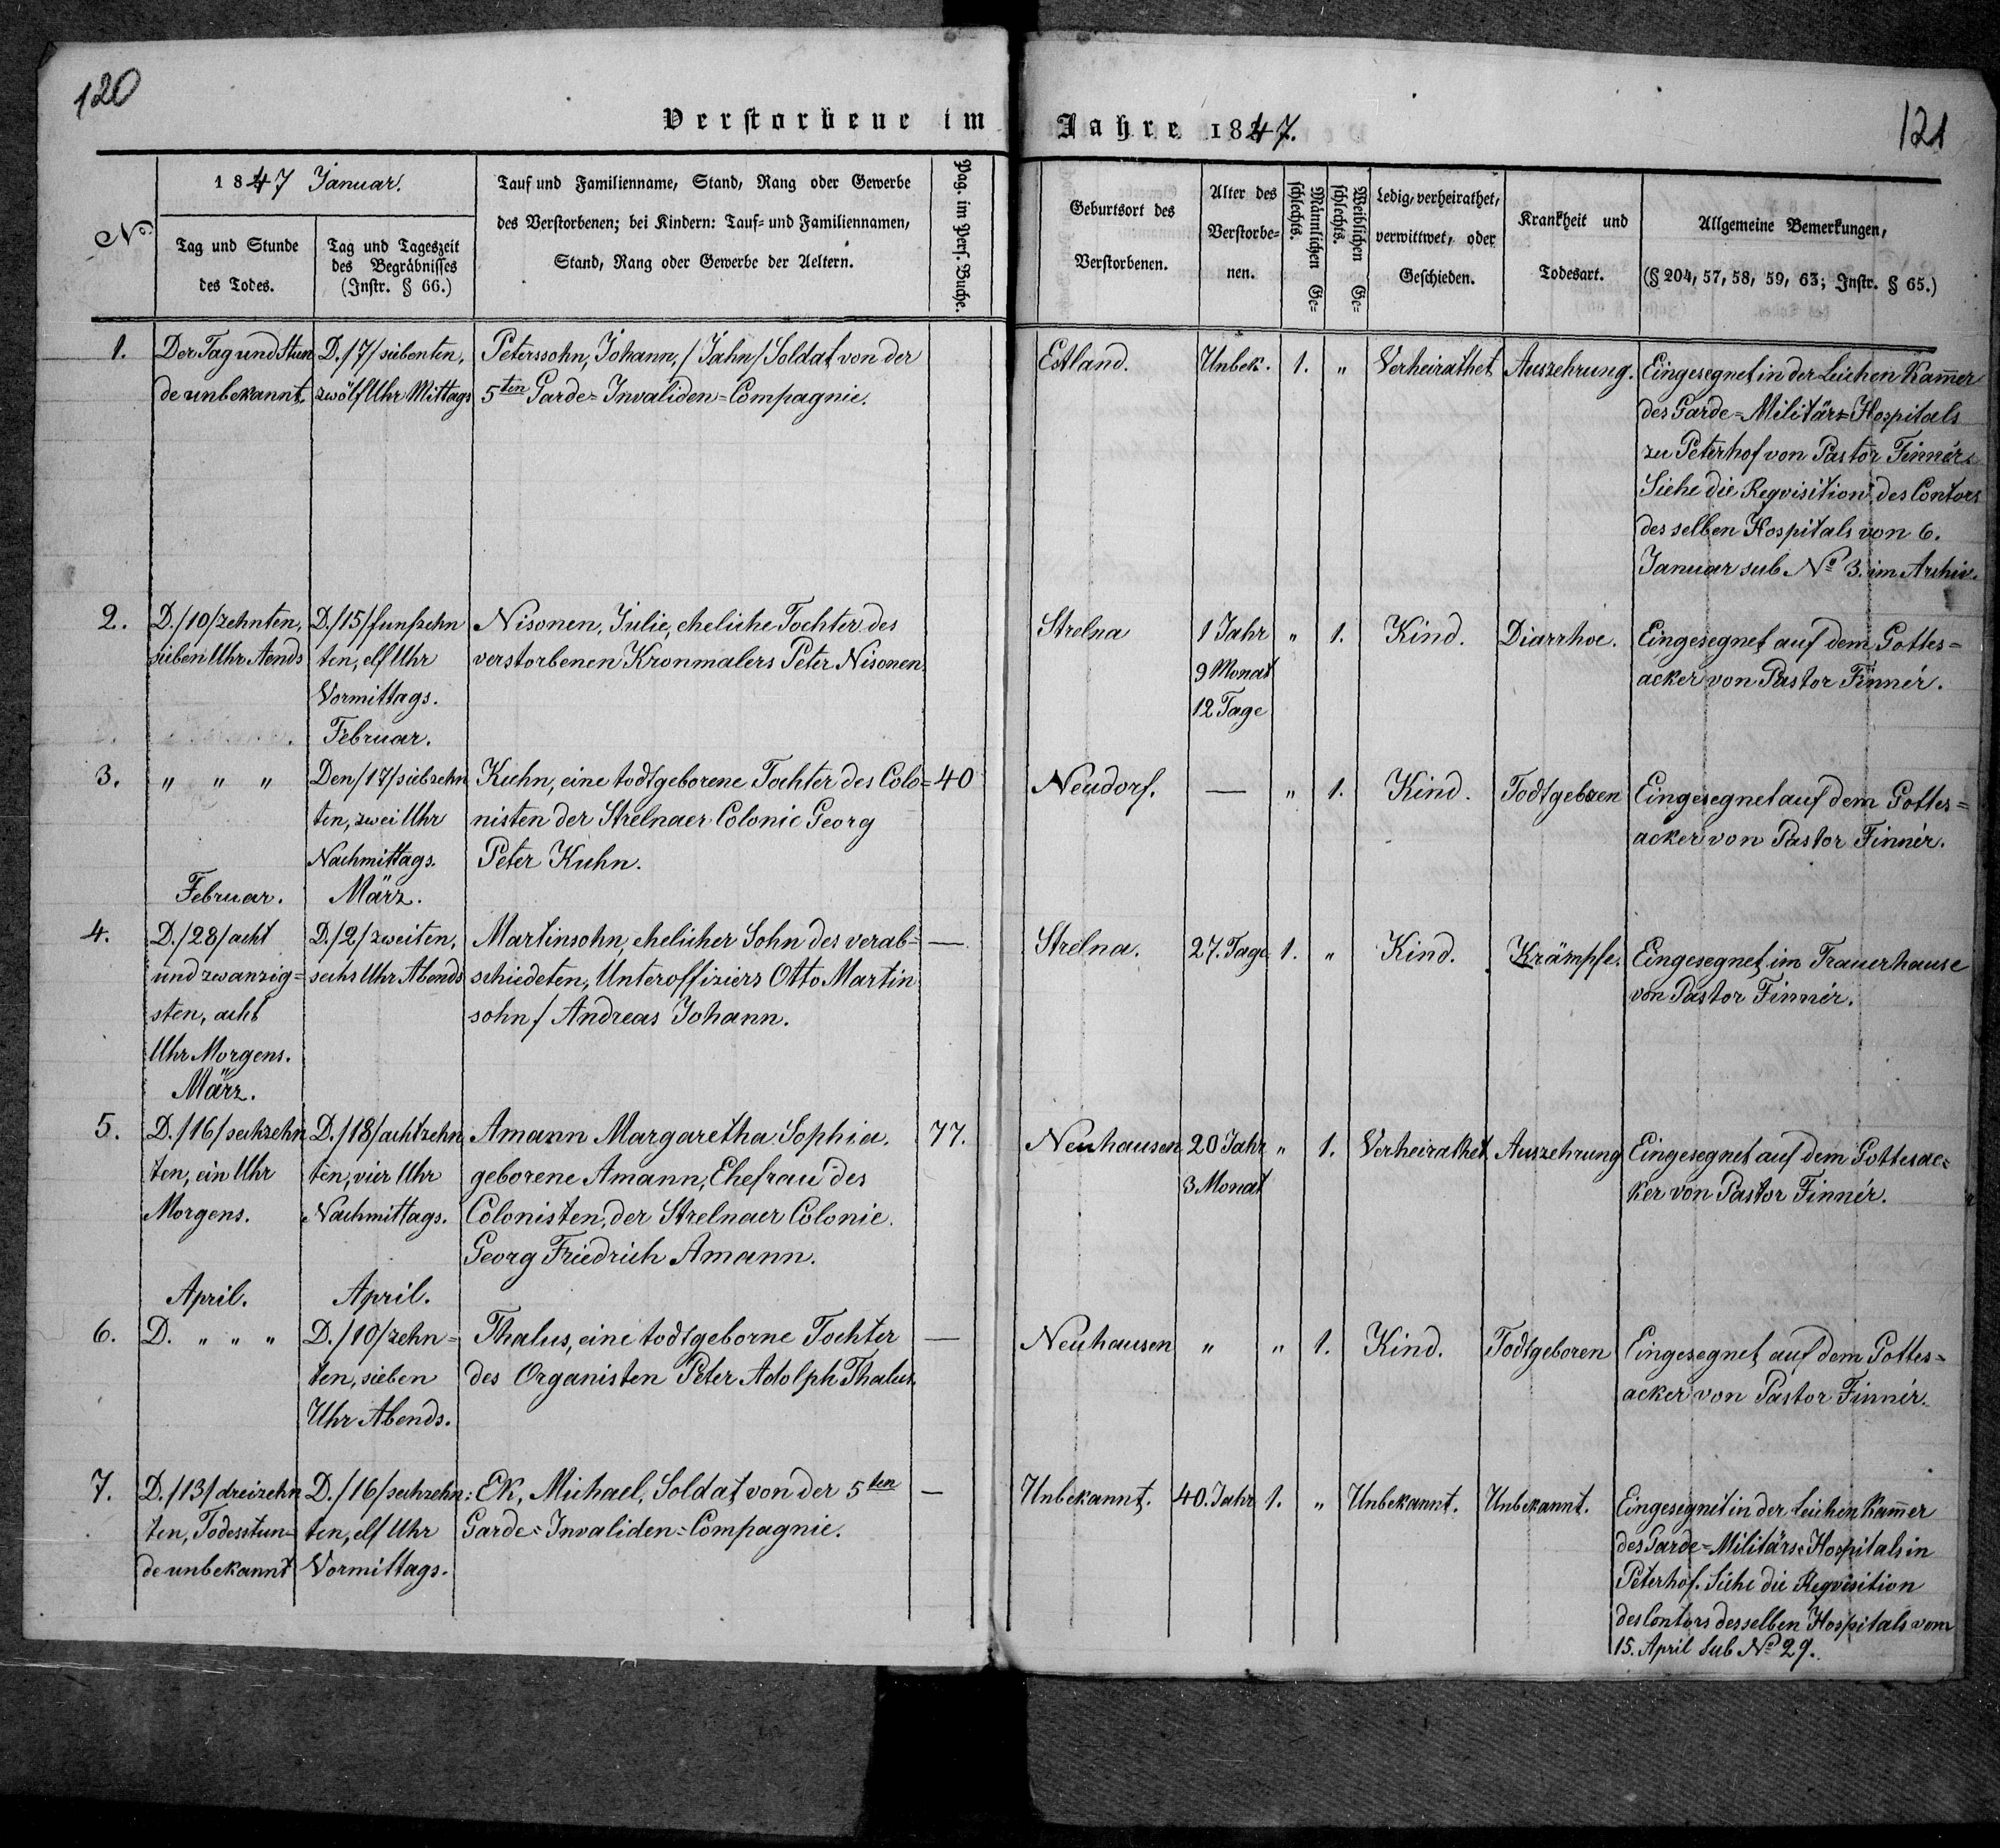 120
Verstorbene im
Jahre 1847.
121
No.
1847 Januar.
Tag und Stunde
des Todes.
Tag und Tageszeit
des Begräbnisses
(Instr. § 66.)
Tauf und Familienname, Stand, Rang oder Gewerbe
des Verstorbenen; bei Kindern: Tauf- und Familiennamen,
Stand, Rang oder Gewerbe der Aeltern.
Pag. im Pers. Buche.
Geburtsort des
Verstorbenen.
Alter des
Verstorbe-
nen.
Männlichen Ge-
schlechts.
Weiblichen Ge-
schlechts.
Ledig, verheirathet,
verwittwet, oder
Geschieden.
Krankheit und
Todesart.
Allgemeine Bemerkungen,
(§ 204, 57, 58, 59, 63; Instr. § 65.)
1.
Der Tag und Stun
de unbekannt.
D. /7/ siebenten,
zwölf Uhr Mittags
Peterssohn, Johann, /Jahn/ Soldat von der
5ten Garde=Invaliden=Compagnie.
Estland.
Unbek.
1.
"
Verheirathet
Auszehrung.
Eingesegnet in der Leichen Kam̄er
des Garde=Militärs=Hospitals
zu Peterhof von Pastor Finnér.
Siehe die Reqvisition des Contors
des selben Hospitals von 6.
Januar sub No 3. im Archiv.
2.
D. /10/ zehnten,
sieben Uhr Aends
D. /15/ funfzehn
ten, elf Uhr
Vormittags.
Nisonen, Julie, eheliche Tochter des
verstorbenen Kronmalers Peter Nisonen.
Strelna
1 Jahr
9 Monat
12 Tage
"
1.
Kind.
Diarrhoe.
Eingesegnet auf dem Gottes=
acker von Pastor Finnér.
Februar.
3.
" " "
Den /17/ siebzehn
ten, zwei Uhr
Nachmittags.
Kuhn, eine todtgeborene Tochter des Colo=
nisten der Strelnaer Colonie Georg
Peter Kuhn.
40
Neudorf.
—
"
1.
Kind.
Todtgeboren
Eingesegnet auf dem Gottes=
acker von Pastor Finnér.
Februar.
März.
4.
D. /28/ acht
und zwanzig=
sten, acht
Uhr Morgens.
D. /2/ zweiten,
sechs Uhr Abends
Martinsohn, ehelicher Sohn des verab=
schiedeten, Unteroffiziers Otto Martin
sohn / Andreas Johann.
—
Strelna.
27. Tage
1.
"
Kind.
Krämpfe.
Eingesegnet im Trauerhause
von Pastor Finnér.
März.
5.
D. /16/ sechzehn
ten, ein Uhr
Morgens.
D. /18/ achtzehn
ten, vier Uhr
Nachmittags.
Amann Margaretha Sophia,
geborene Amann, Ehefrau des
Colonisten, der Strelnaer Colonie.
Georg Friedrich Amann.
77.
Neuhausen
20 Jahr
3 Monat
"
1.
Verheirathet
Auszehrung
Eingesegnet auf dem Gottesac=
ker von Pastor Finnér.
April.
April.
6.
D. " " "
D. /10/ zehn=
ten, sieben
Uhr Abends.
Thalus, eine todtgeborne Tochter
des Organisten Peter Adolph Thalus.
—
Neuhausen
"
"
1.
Kind.
Todtgeboren
Eingesegnet auf dem Gottes=
acker von Pastor Finnér.
7.
D. /13/ dreizehn
ten, Todesstun=
de unbekannt
D. /16/ sechzehn=
ten, elf Uhr
Vormittags.
Ek, Michael, Soldat von der 5ten
Garde=Invaliden=Compagnie.
—
Unbekannt.
40. Jahr
1.
"
Unbekannt.
Unbekannt.
Eingesegnet in der Leichen Kam̄er
des Garde=Militärs=Hospitals in
Peterhof. Siehe die Reqvisition
des Contors desselben Hospitals vom
15. April sub No 29.